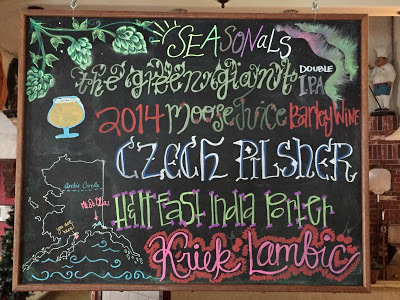 SEASONALS
the green giant DOUBLE IPA
2014 MooseJuice BarleyWine
CZECH PILSNER
H&H East India Porter
Kriek Lambic
Arctic Circle